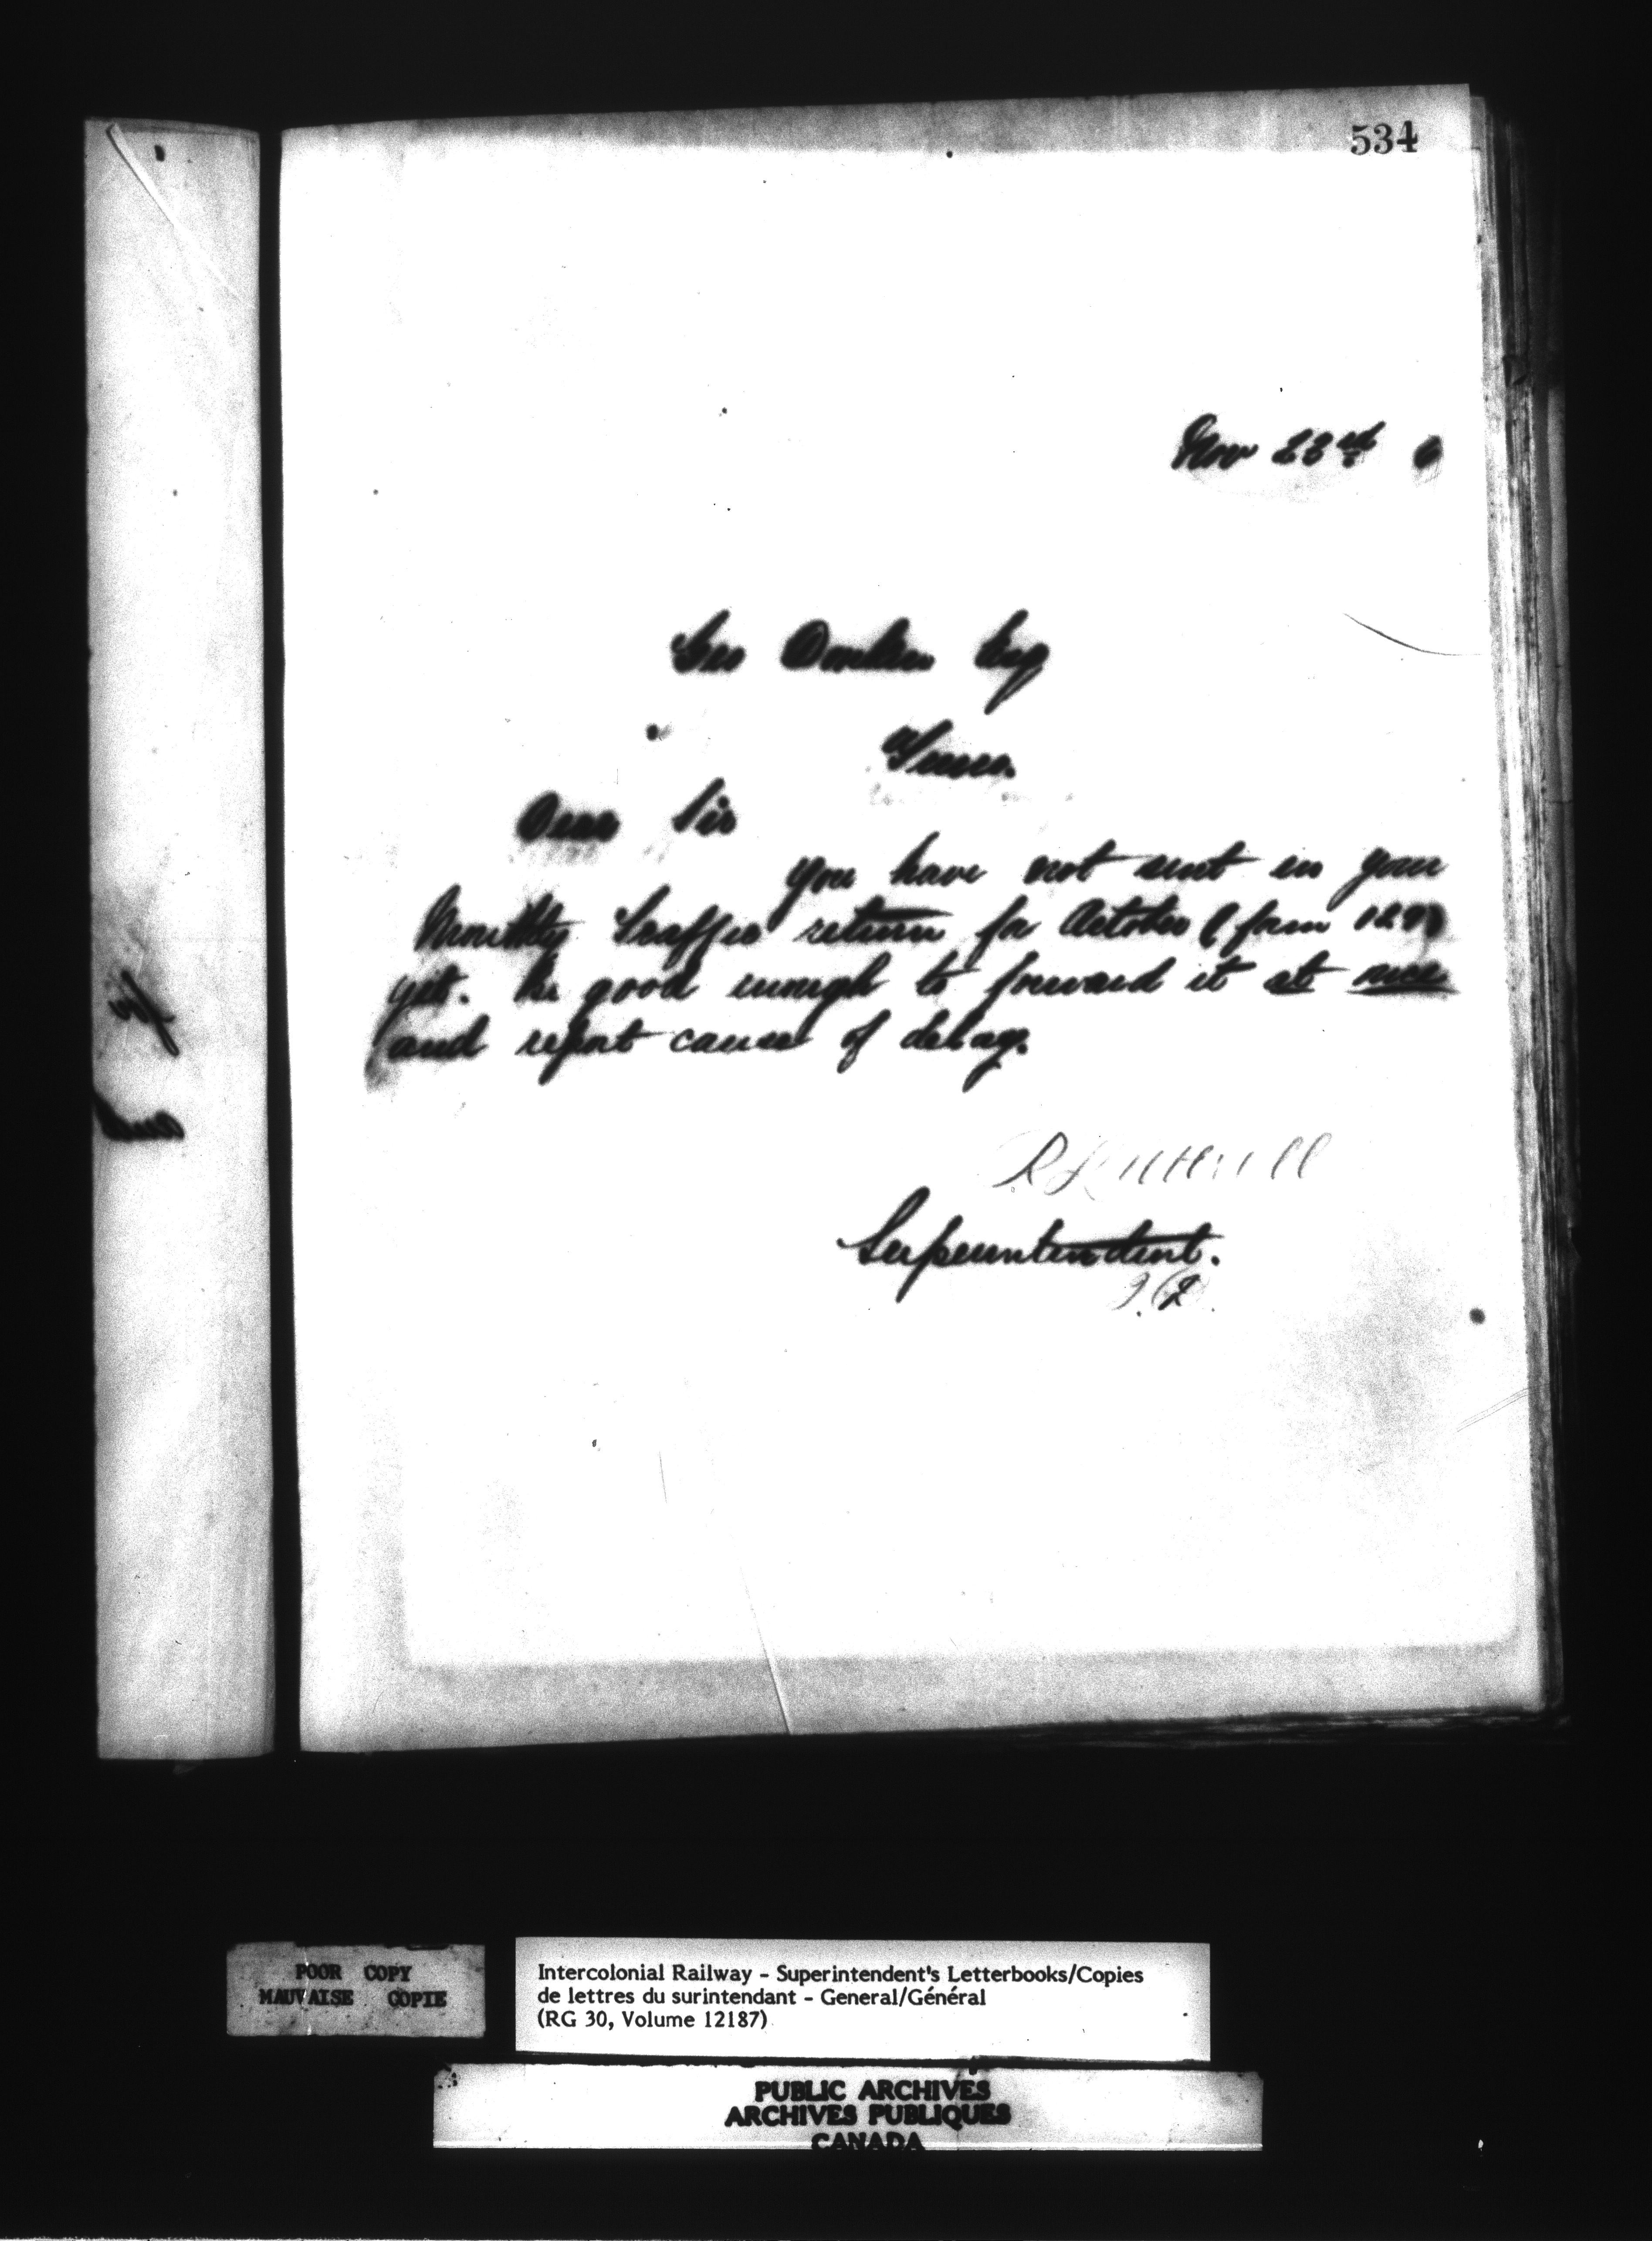 534
Nov 23rd 6
Geo Donkin Esq
Truro.
Dear Sir
You have not sent in your
Monthly Traffic return for October (form 129)
yet. Be good enough to forward it at once
and report cause of delay.
Superintendent.
POOR COPY
MAUVAISE COPIE
Intercolonial Railway - Superintendent's Letterbooks/Copies
de lettres du surintendant - General/Général
(RG 30, Volume 12187)
PUBLIC ARCHIVES
ARCHIVES PUBLIQUES
CANADA